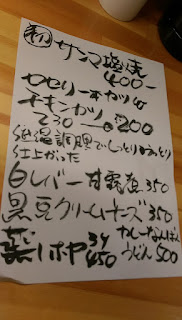 初 サンマ塩焼
400-
セセリ一本カツ 45
チキンカツ
250 200
低温調理でしっとり
仕上がった
白レバー甘露煮 350
黒豆クリームチーズ 350
蒸しホヤ 450
カレーなんばん
うどん 500